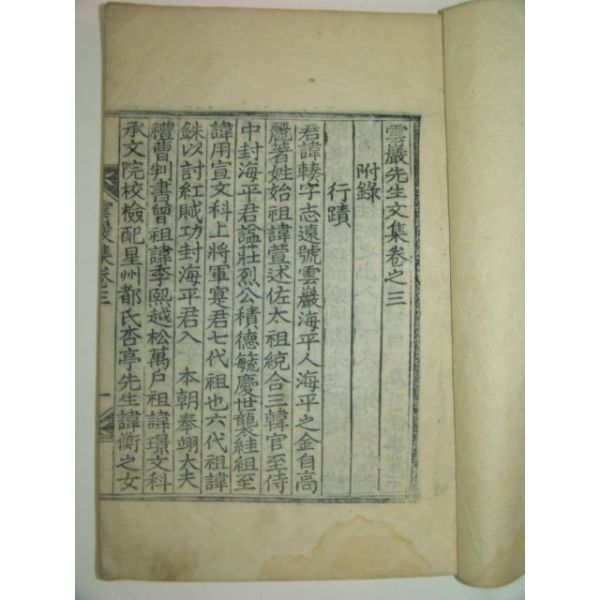 雲巖先生文集卷之三
附錄
行蹟
君諱輳字志遠號雲巖海平人海平之金自高
麗著姓始祖諱萱述佐太祖統合三韓官至侍
中封海平君諡壯烈公積德毓慶世襲絓組至
諱用宣文科上將軍寔君七代祖也六代祖諱
銖以討紅賊功封海平君入 本朝奉翊大夫
禮曹判書曾祖諱孝熙越松萬戶祖諱璟文科
承文院校檢配星州都氏杏亭先生諱衡之女
雲巖集卷三
一